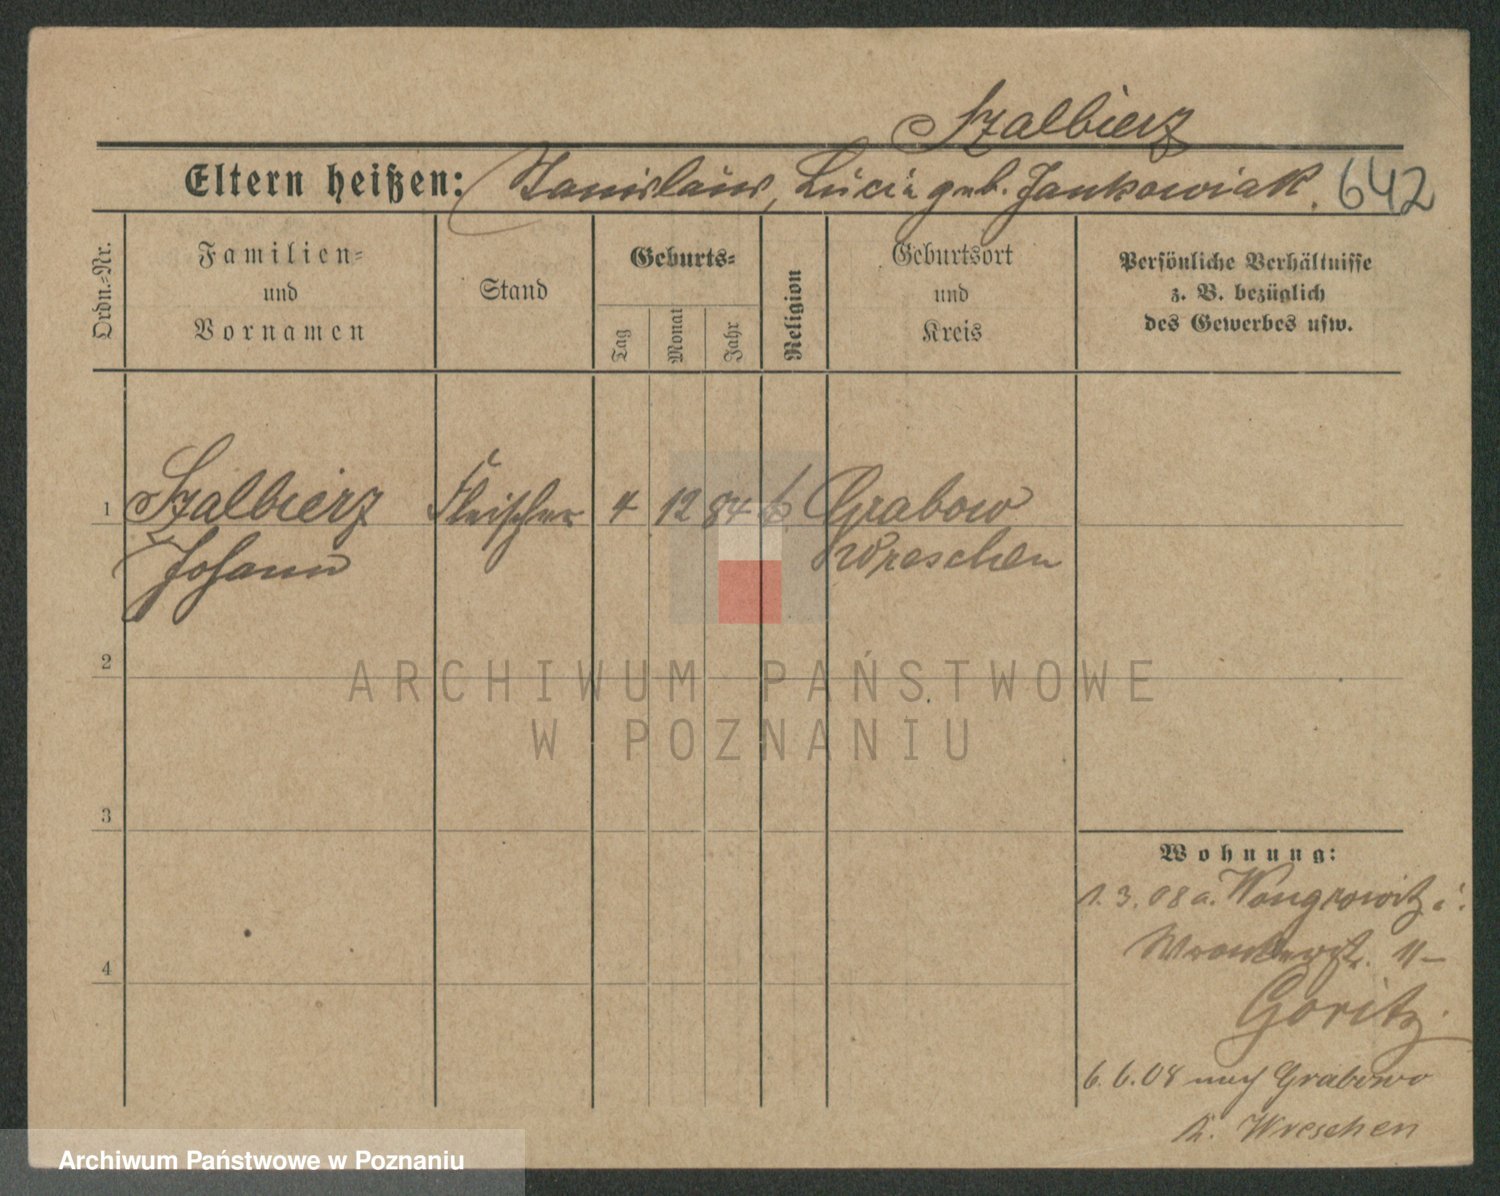 Szalbierz
Eltern heißen: Stanislaus, Lucia geb. Jankowiak. 642
Ordn.-Nr.
Familien-
und
Vornamen
Stand
Geburts-
Tag
Monat
Jahr
Religion
Geburtsort
und
Kreis
Persönliche Verhältnisse
z. B. bezüglich
des Gewerbes usw.
1 Szalbierz Fleischer 4 12 84 k. Grabow
Johann Wreschen
2
ARCHIWUM PAŃSTWOWE
W POZNANIU
3
Wohnung:
1. 3. 08 a. Wongrowitz i.
4 Wronkerstr. 11-
Goritz.
6. 6. 08 nach Grabowo
K. Wreschen
Archiwum Państwowe w Poznaniu